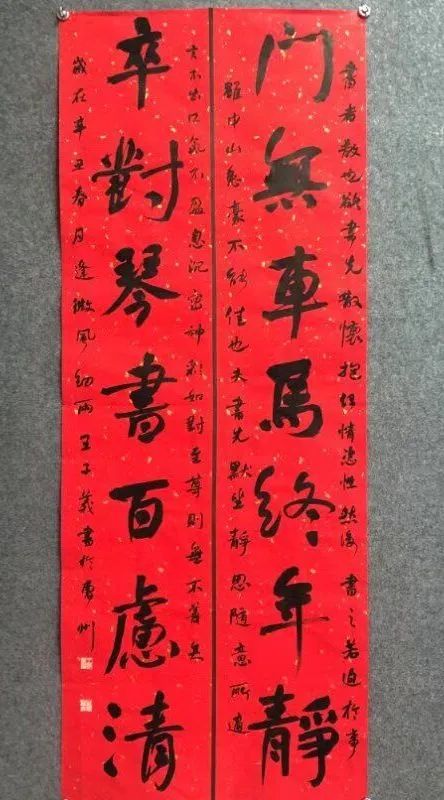 書者散也欲書先散懷抱任情恣性然後書之若迫於事
門無車馬終年靜
雖中山兔毫不能佳也夫書先默坐靜思隨意所適
言不出口氣不盈息沉密神彩如對至尊則無不善矣
卒對琴書百慮清
歲在辛丑春月逢微風細雨王子義書於州